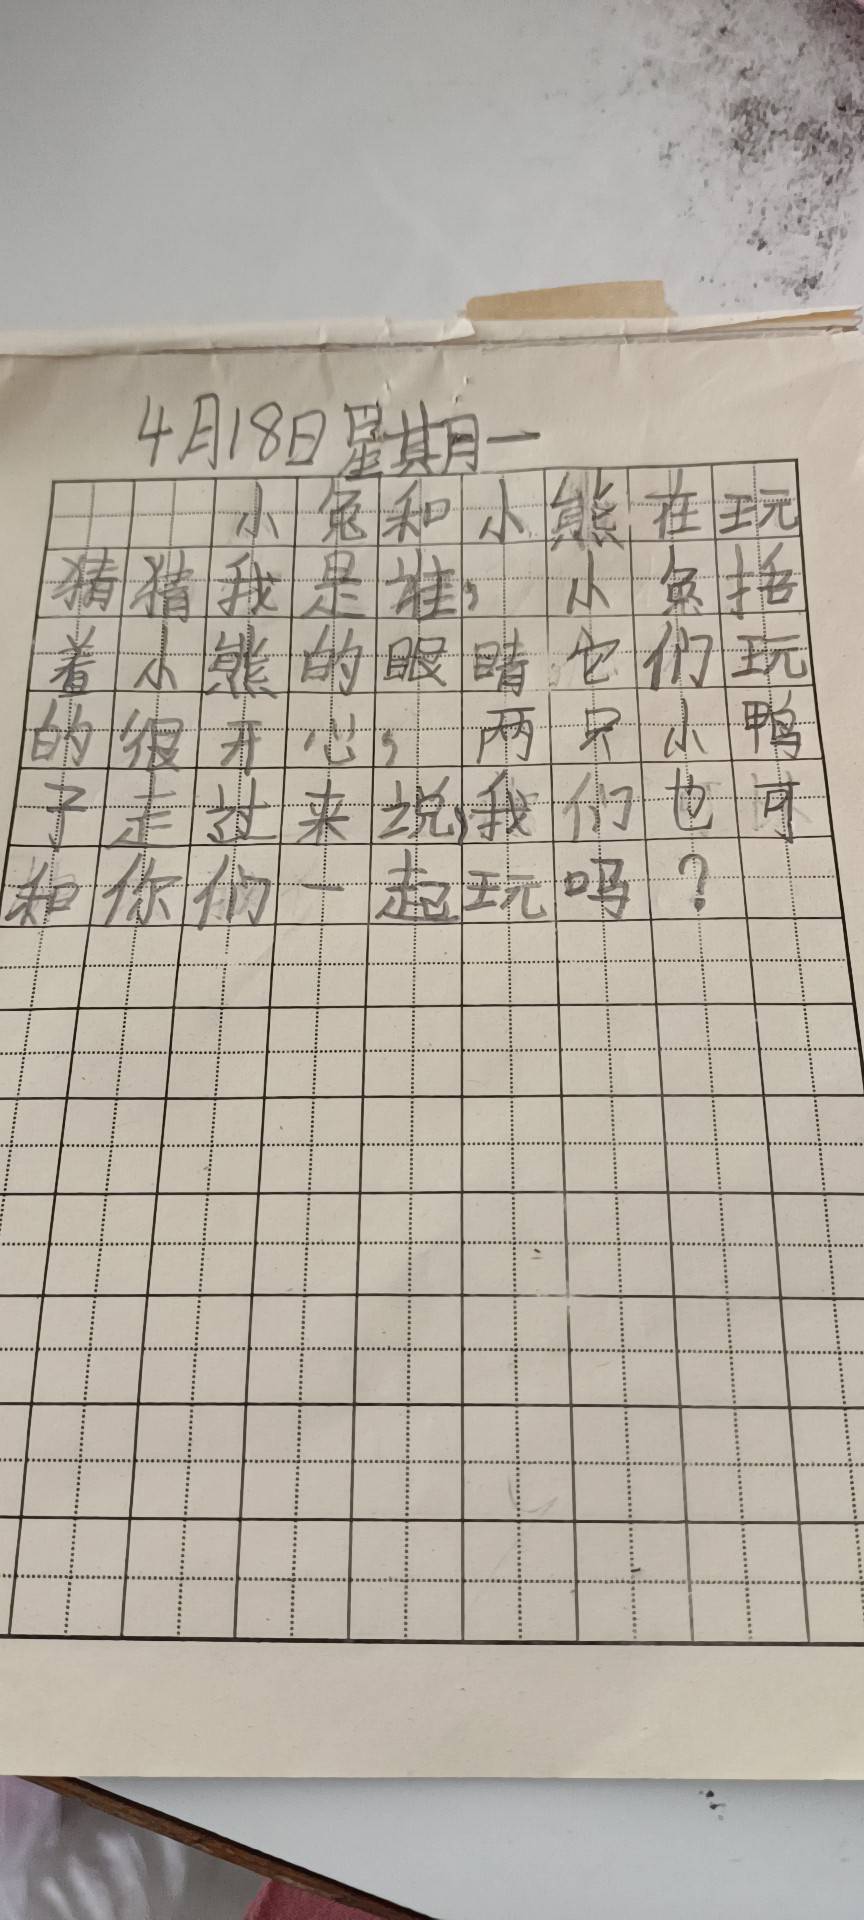 4月18日星期一
小兔和小熊在玩
猜猜我是谁，小兔捂
着小熊的眼睛它们玩
的很开心，两只小鸭
子走过来说，我们也可
和你们一起玩吗？